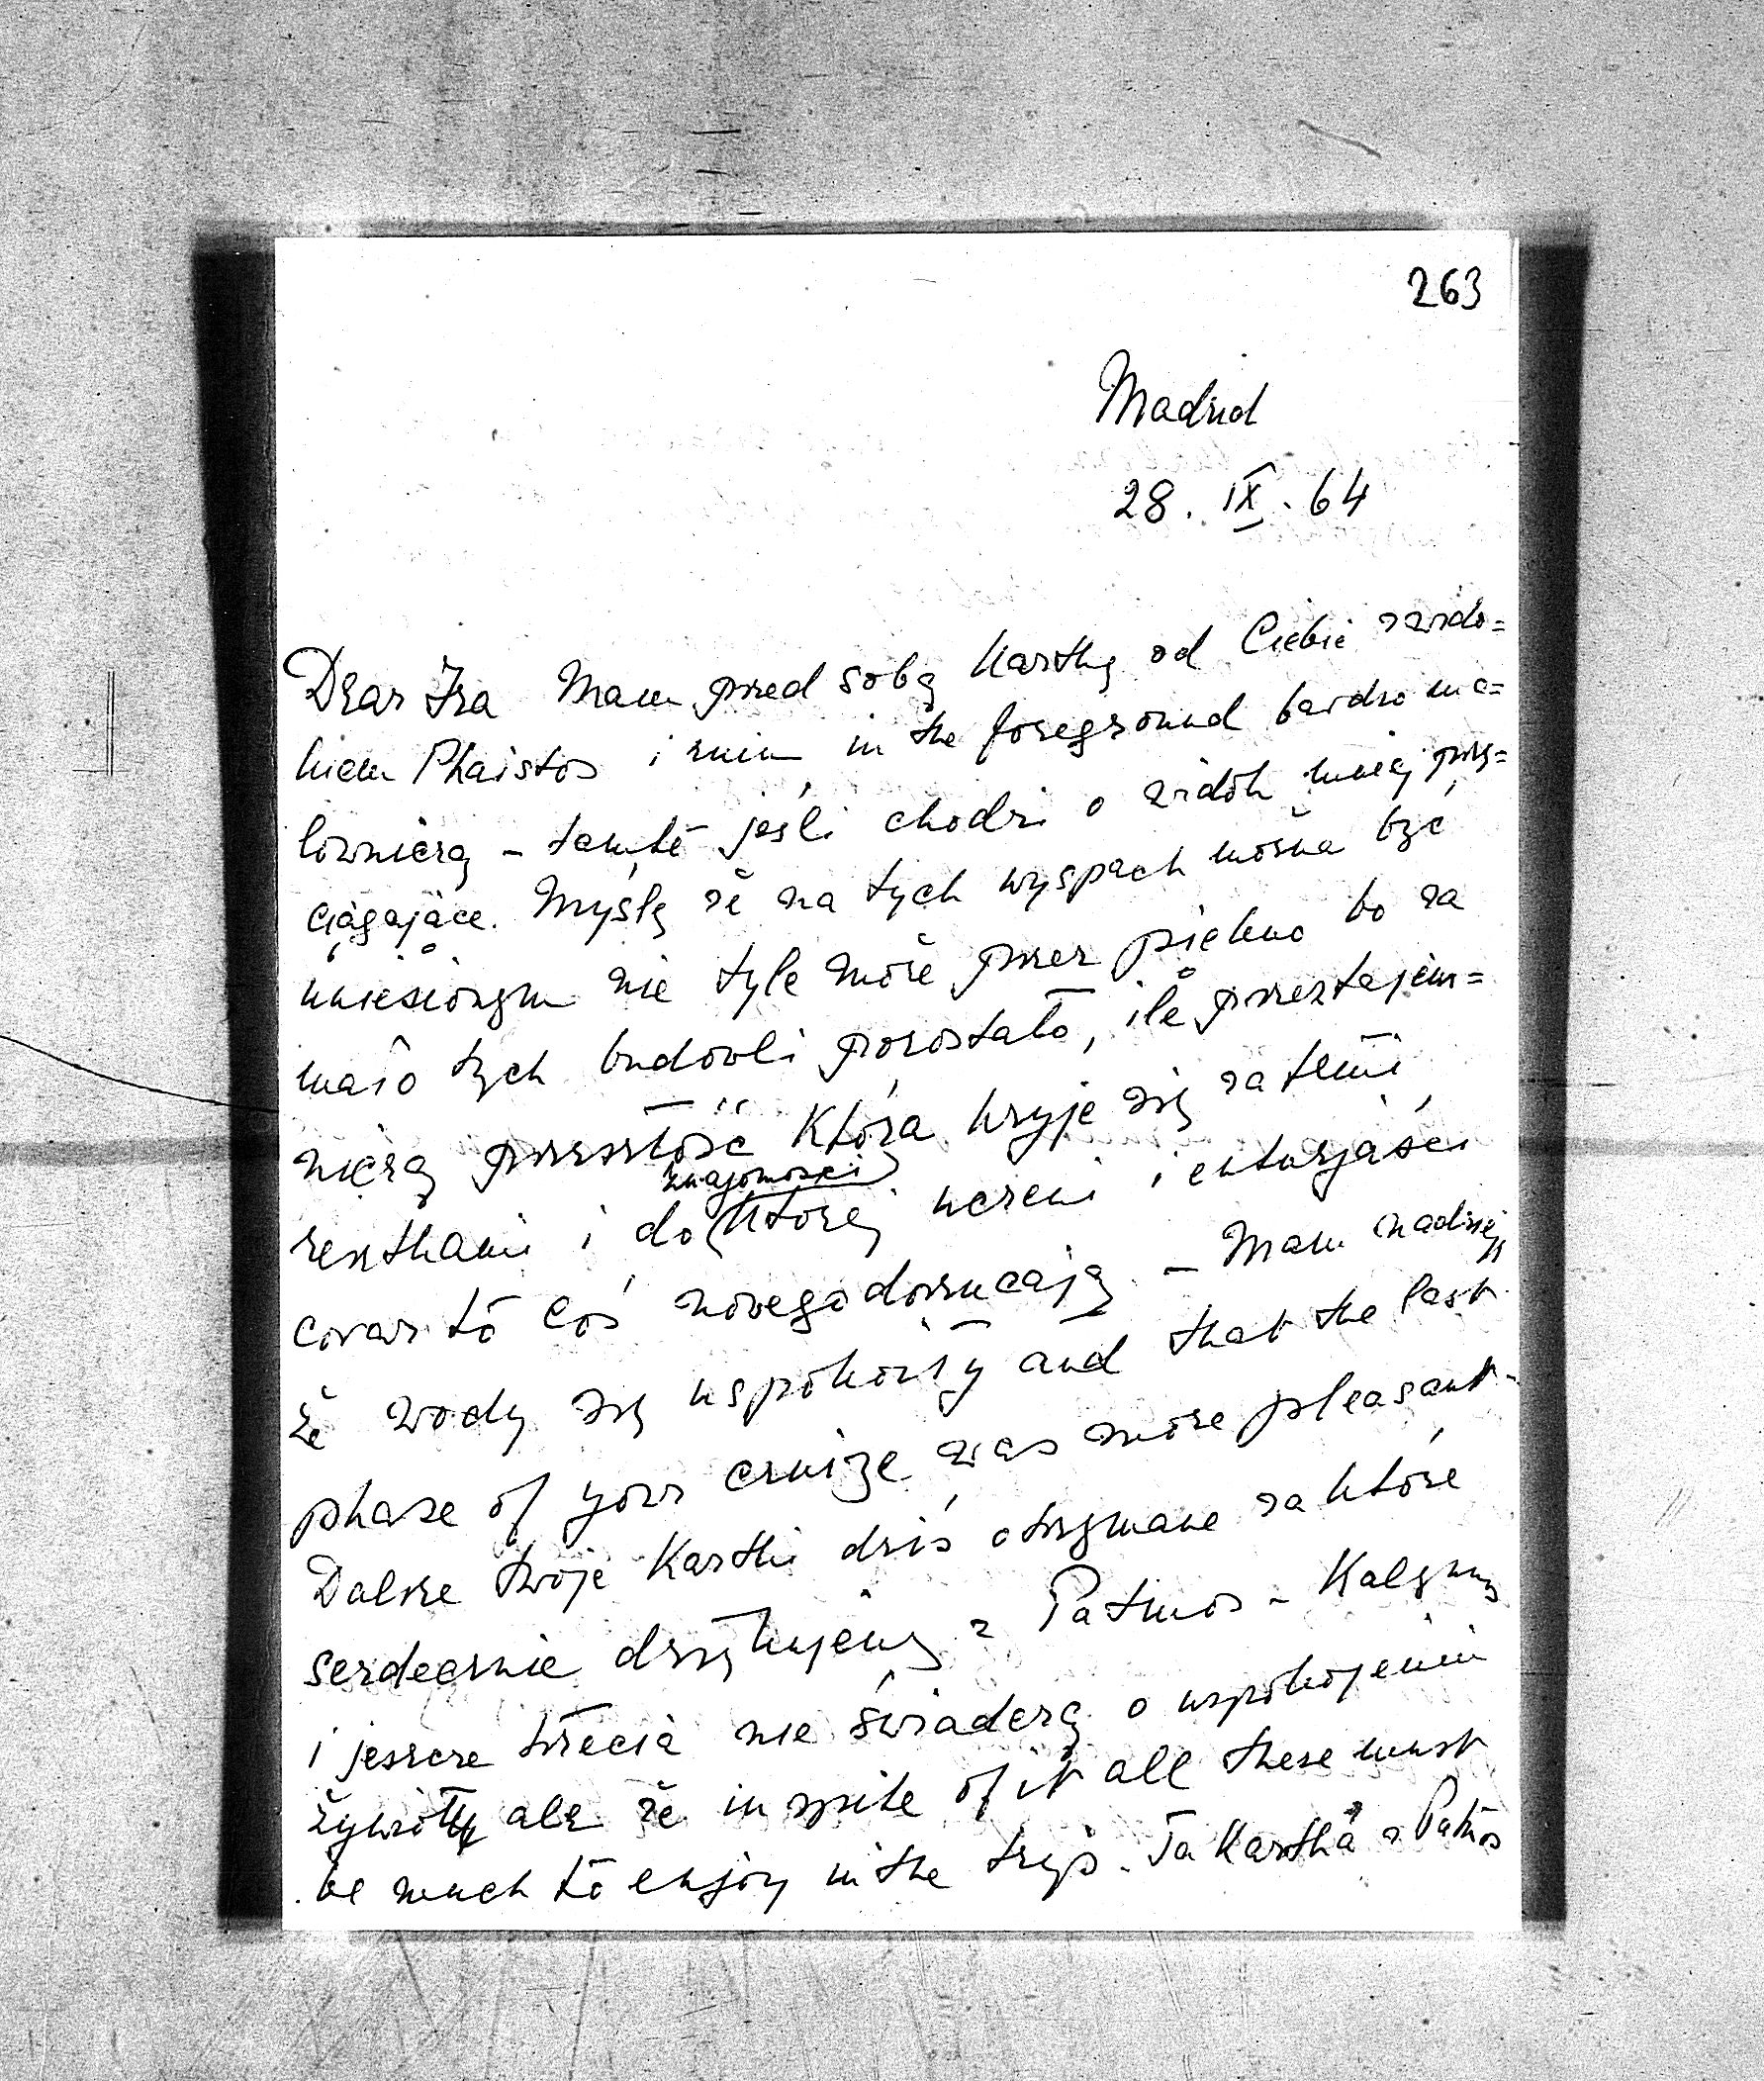 263
Madrid
28. IX. 64
Dear Iza Mam przed sobą kartkę od Ciebie z wido=
kiem Phaistos i nim in the foreground bardzo ma=
lowniczą – także jeśli chodzi o widok mniej przy=
ciągające. Myślę że na tych wyspach można być
uniesionym nie tyle może przez piękno bo za
mało tych budowli pozostało, ile przez tajem=
niczą przeszłość która kryje się za temi
resztkami i do znajomości której uczeni i entuzjaści
coraz to coś nowego dorzucają – Mam nadzieję
że wody się uspokoiły and that the last
phase of your cruize was more pleasant –
Dalsze twoje kartki dziś otrzymane za które
serdecznie dziękujemy z Patmos – Kalymny
i jeszcze trzecia nie świadczą o uspokojeniu
żywiołu ale że in spite of it all there must
be much to enjoy in the trip. Ta kartka z Patmos